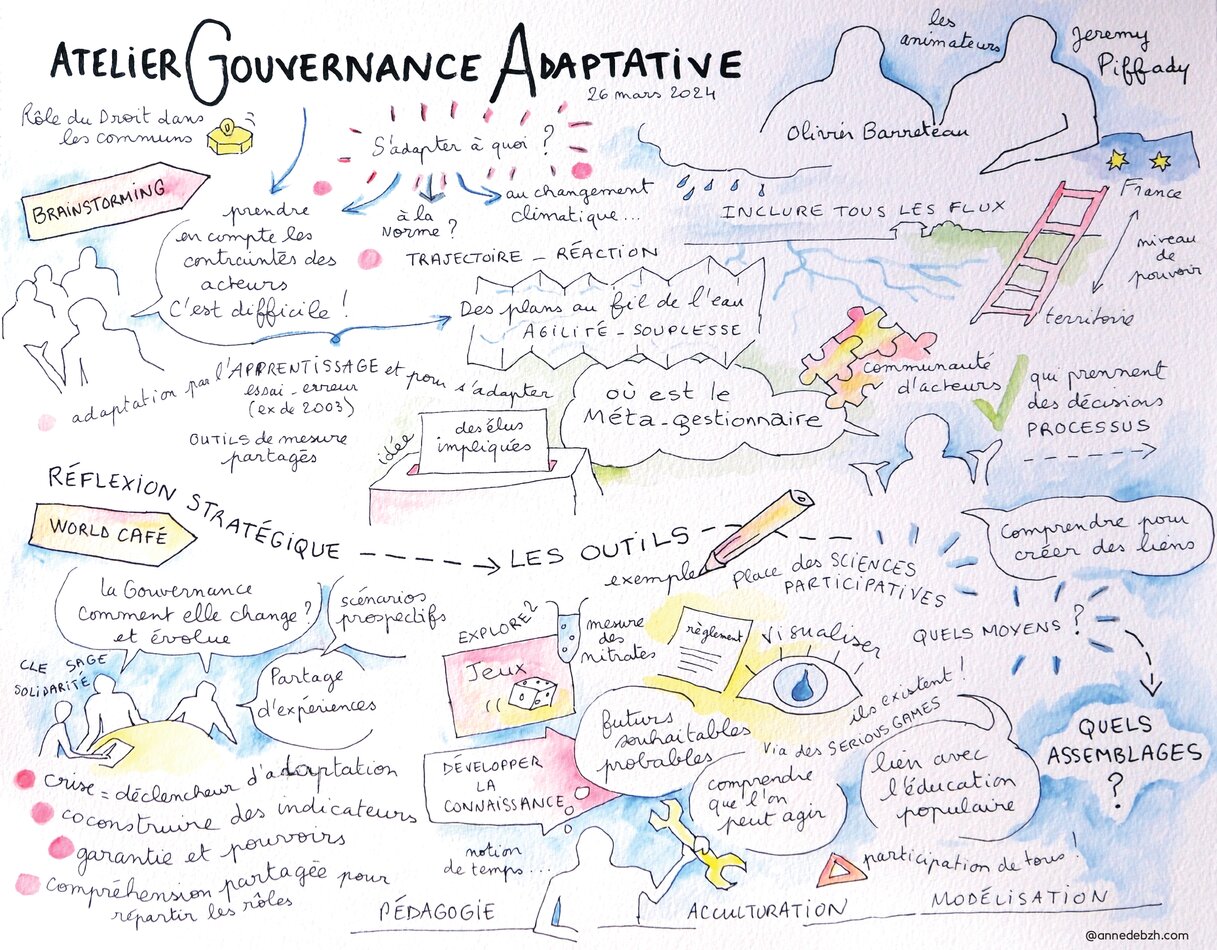 ATELIER GOUVERNANCE ADAPTATIVE
26 mars 2024
les
animateurs
Jeremy
Piffady
Olivier Barreteau
Rôle du Droit dans
les communs
BRAINSTORMING
S'adapter à quoi ?
à la
norme ?
au changement
climatique...
prendre
en compte les
contraintes des
acteurs
C'est difficile !
TRAJECTOIRE - RÉACTION
INCLURE TOUS LES FLUX
France
niveau
de
pouvoir
territoire
Des plans au fil de l'eau
AGILITÉ - SOUPLESSE
adaptation par l'APPRENTISSAGE et pour s'adapter
essai-erreur
(ex de 2003)
OUTILS de mesure
partagés
idée
des élus
impliqués
où est le
Méta-gestionnaire
communauté
d'acteurs
qui prennent
des décisions
PROCESSUS
RÉFLEXION STRATÉGIQUE
WORLD CAFÉ
LES OUTILS
exemple
Place des SCIENCES
PARTICIPATIVES
Comprendre pour
créer des liens
QUELS MOYENS ?
QUELS
ASSEMBLAGES
?
la Gouvernance
Comment elle change ?
et évolue
scénarios
prospectifs
CLE SAGE
SOLIDARITÉ
Partage
d'expériences
EXPLORE2
Jeux
mesure
des
nitrates
règlement
visualiser
ils existent !
Via des SERIOUS GAMES
futurs
souhaitables
probables
DÉVELOPPER
LA
CONNAISSANCE
comprendre
que l'on
peut agir
lien avec
l'éducation
populaire
crise = déclencheur d'adaptation
coconstruire des indicateurs
garantie et pouvoirs
compréhension partagée pour
répartir les rôles
notion
de temps...
participation de tous !
PÉDAGOGIE
ACCULTURATION
MODÉLISATION
@annedebzh.com